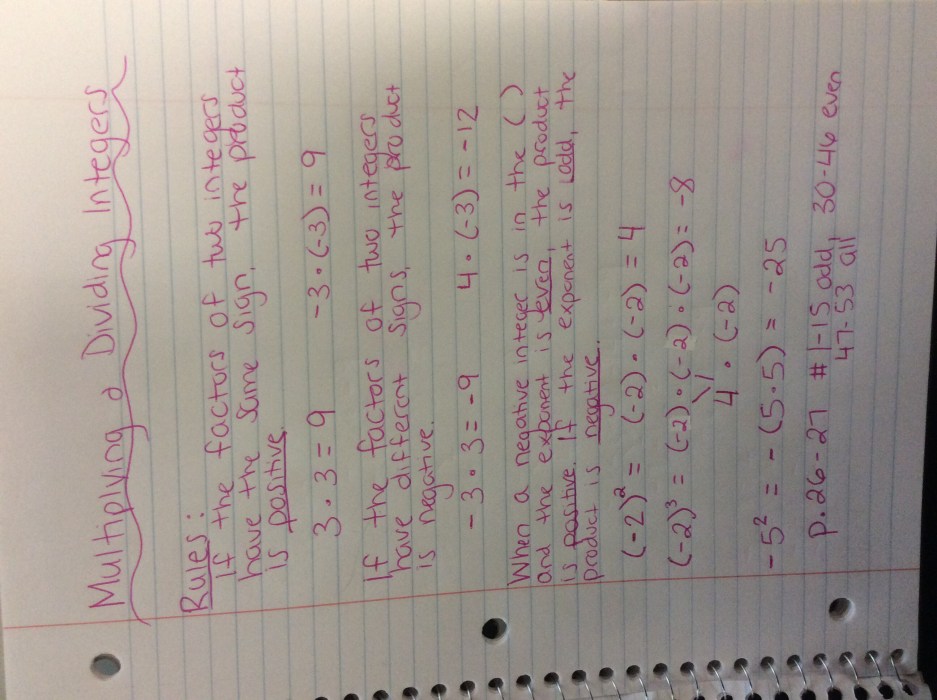 Multiplying & Dividing Integers
Rules:
If the factors of two integers
have the same sign, the product
is positive.
3 · 3 = 9 -3 · (-3) = 9
If the factors of two integers
have different signs, the product
is negative.
-3 · 3 = -9 4 · (-3) = -12
When a negative integer is in the ( )
and the exponent is even, the product
is positive. If the exponent is odd, the
product is negative.
(-2)² = (-2) · (-2) = 4
(-2)³ = (-2) · (-2) · (-2) = -8
4 · (-2)
-5² = -(5 · 5) = -25
p. 26-27 #1-15 odd, 30-46 even
47-53 all